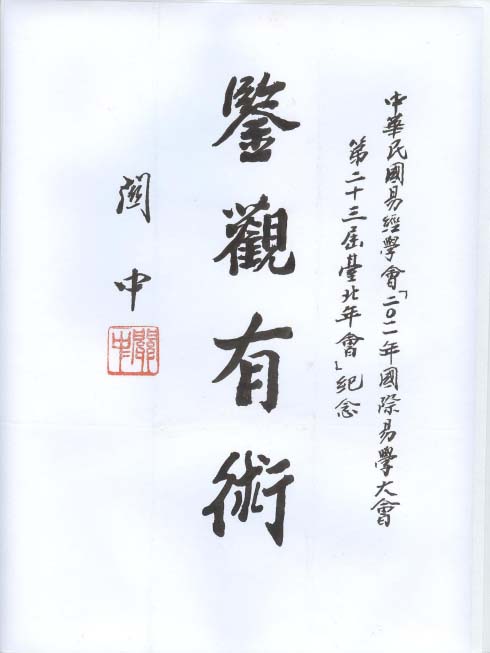 中華民國易經學會「二〇一一年國際易學大會
第二十三屆臺北年會」紀念
鑒觀有術
關中
關中